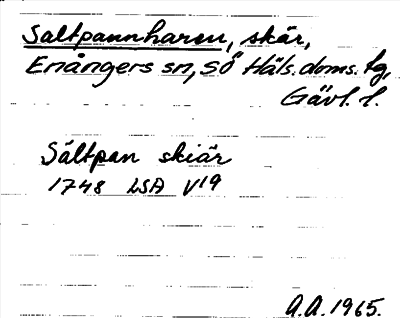 Saltpannharen, skär,
Enångers sn, SÖ Häls. doms. lg,
Gävl. l.
Sältpan skiär
1748 LSA V19
A.A. 1965.